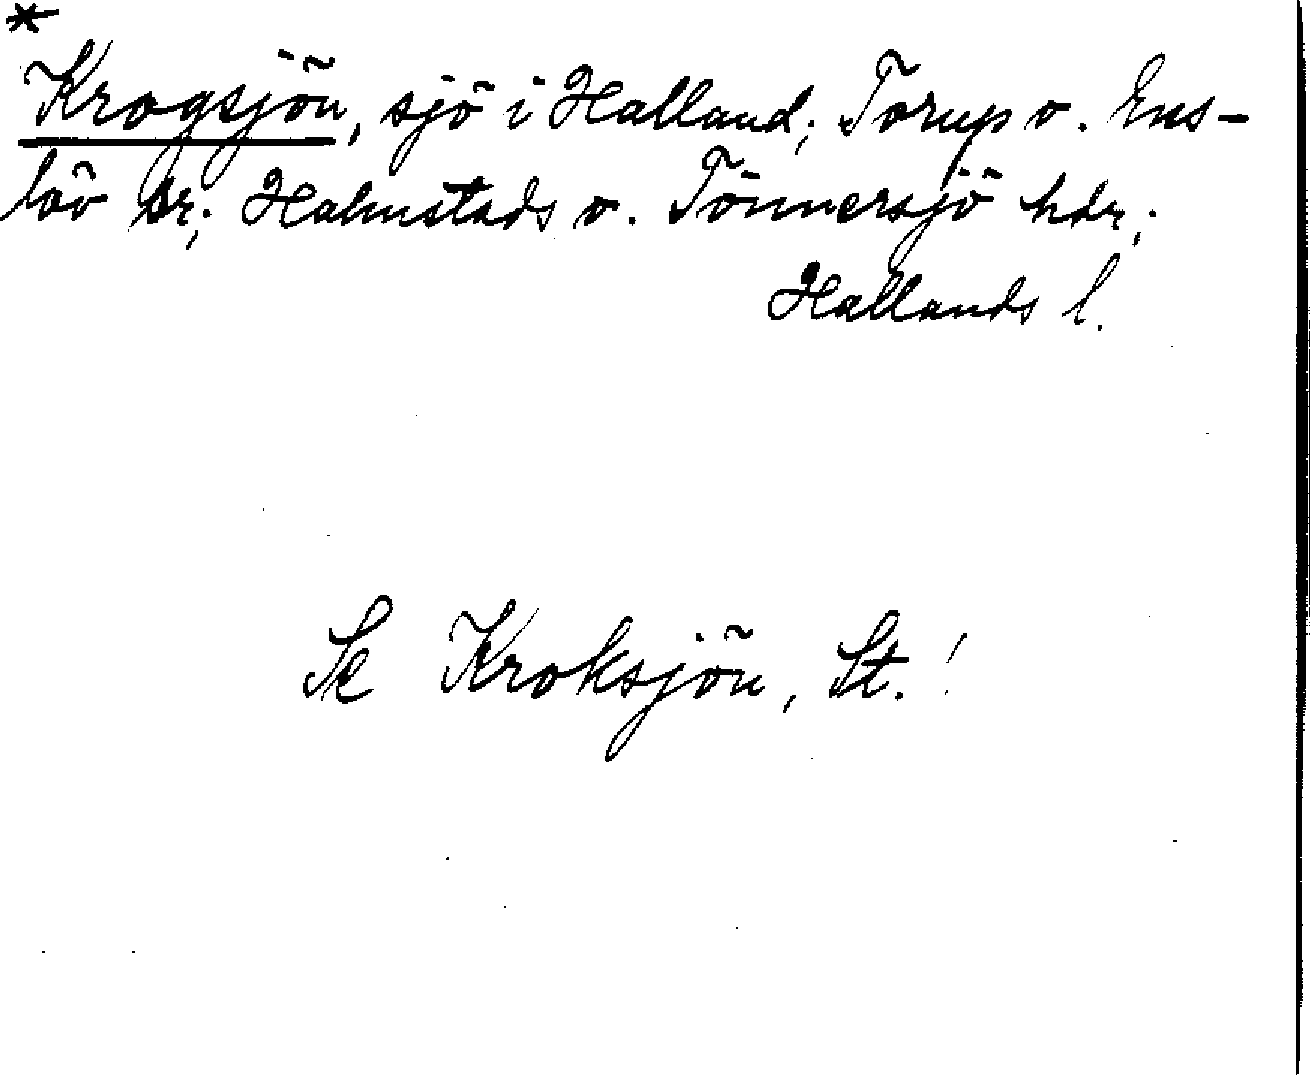 *
Krogsjön, sjö i Halland; Torup o. Ens-
löv sr; Halmstads o. Tönnersjö hdr;
Hallands l.
Se Kroksjön, St.!